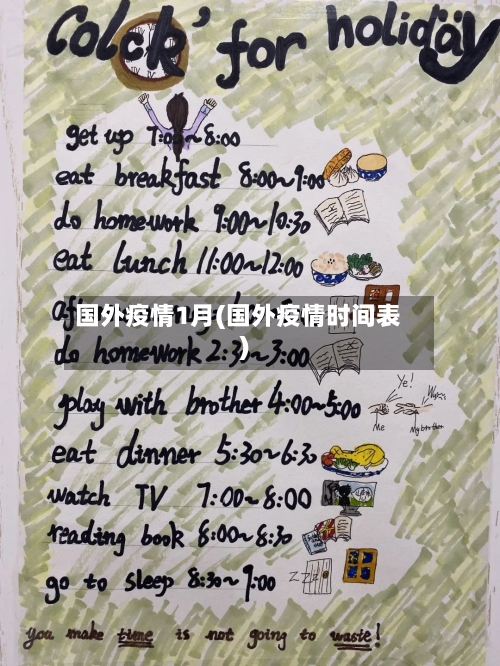 Colck' for holiday
get up 7:00~8:00
eat breakfast 8:00~9:00
do homework 9:00~10:30
eat lunch 11:00~12:00
国外疫情1月(国外疫情时间表
)
do homework 2:30~3:00
play with brother 4:00~5:00
Ye!
Me
My brother
eat dinner 5:30~6:30
watch TV 7:00~8:00
reading book 8:00~8:30
go to sleep 8:30~9:00
ZZZ
you make time is not going to waste!